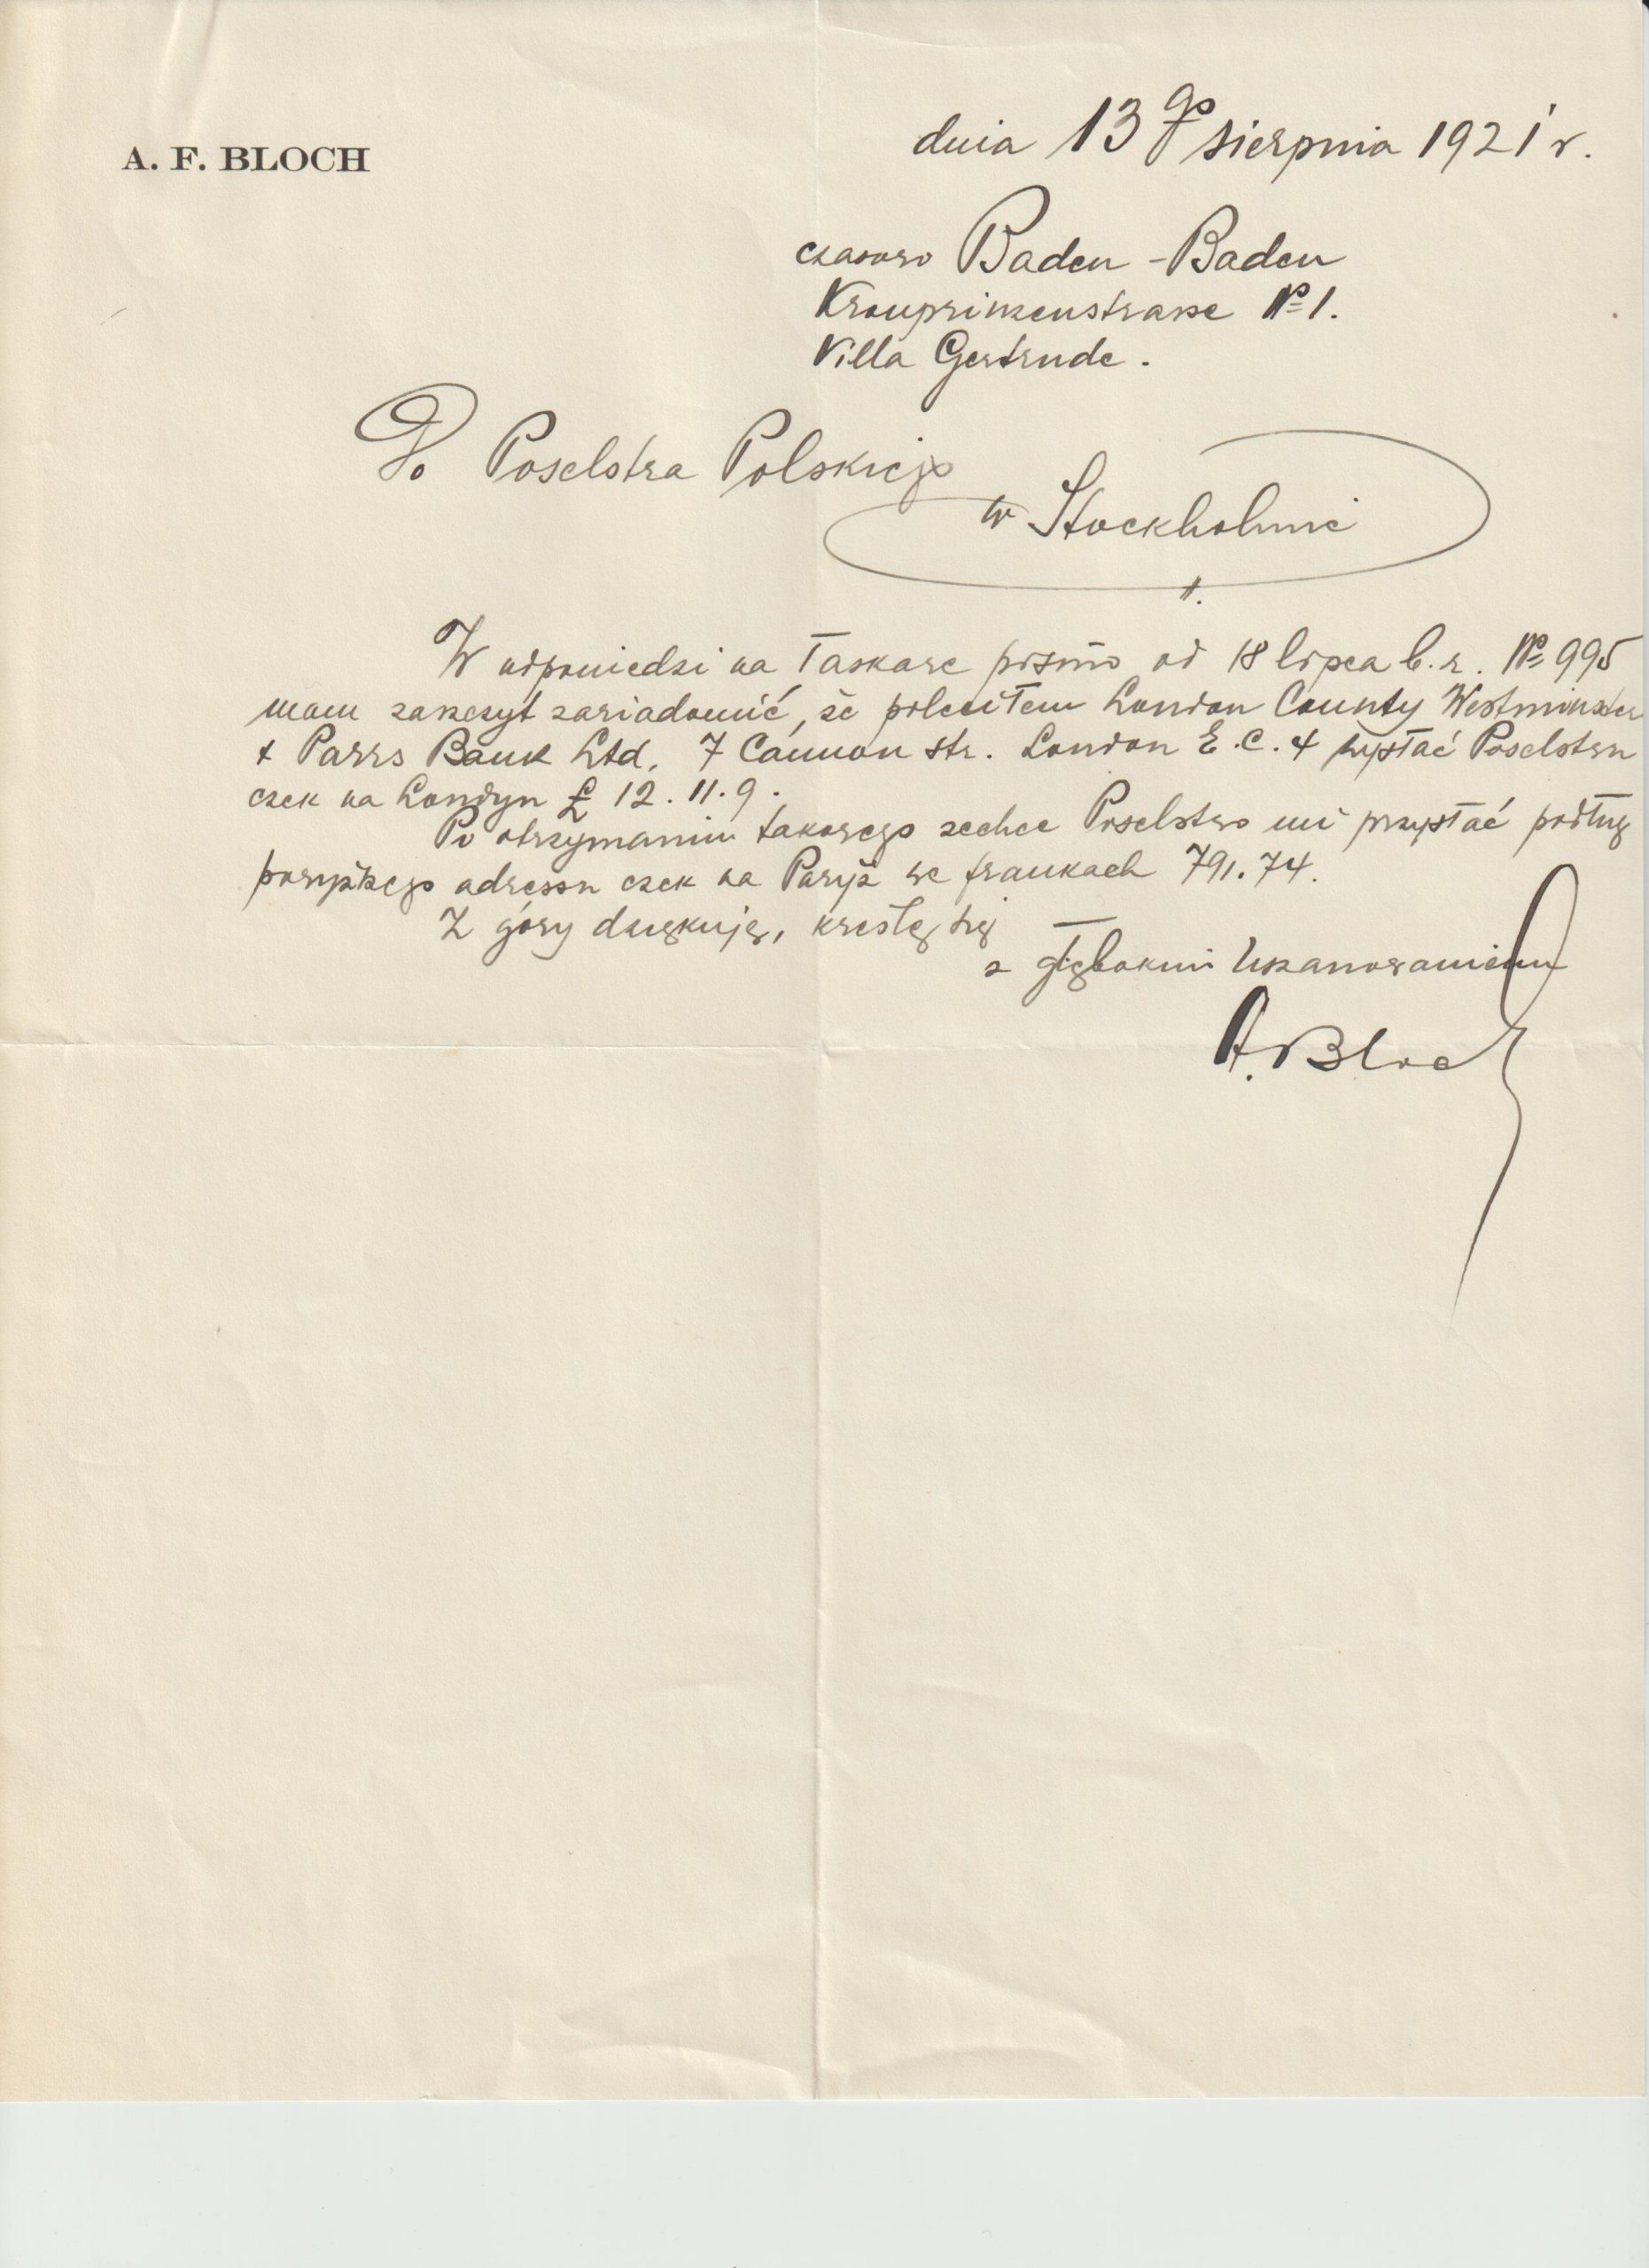 A. F. BLOCH
dnia 13go sierpnia 1921 r.
czasowo Baden-Baden
Kronprinzenstrasse № 1.
Villa Gertrude.
Do Poselstwa Polskiego
w Stockholmie
W odpowiedzi na łaskawe pismo od 18 lipca b.r. № 995
mam zaszczyt zawiadomić, że poleciłem London County Westminster
& Parrs Bank Ltd. 7 Cannon str. London E.C.4 wysłać Poselstwu
czek na Londyn £ 12.11.9.
Po otrzymaniu takowego zechce Poselstwo mi przysłać podług
powyższego adressu czek na Paryż we frankach 791.74.
Z góry dziękuję, kreślę się
z głębokim uszanowaniem
A. Bloch